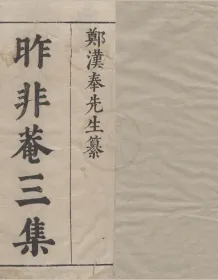 鄭漢奉先生纂
昨非菴三集